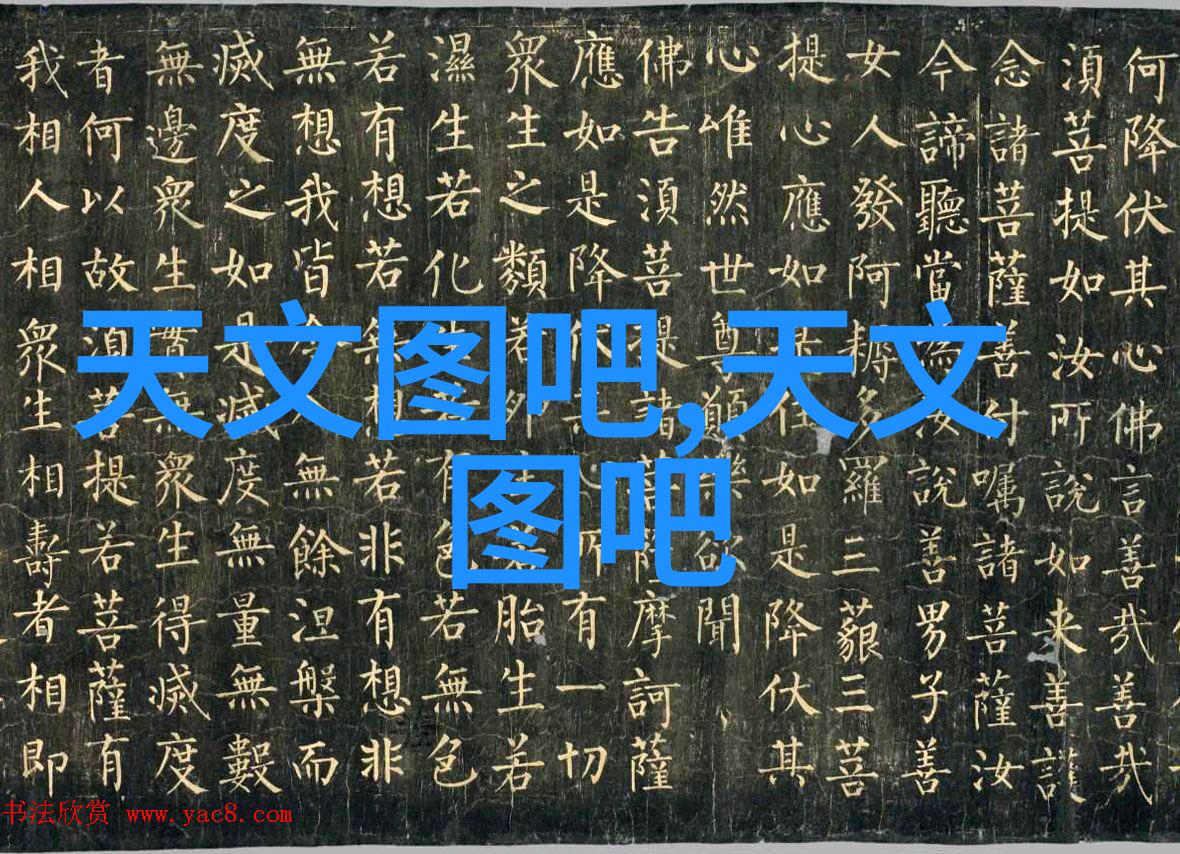 何降伏其心佛言善哉善哉
湏菩提如汝所說如来善護
念諸菩薩善付嘱諸菩薩汝
今諦聽當為汝說善男子善
女人發阿耨多羅三藐三菩
提心應如是住如是降伏其
心唯然世尊願樂欲聞
佛告湏菩提諸菩薩摩訶薩
應如是降伏其心所有一切
衆生之類若卵生若胎生若
濕生若化生若有色若無色
若有想若無想若非有想非
無想我皆令入無餘涅槃而
滅度之如是滅度無量無數
無邊衆生實無衆生得滅度
者何以故湏菩提若菩薩有
我相人相衆生相壽者相即
天文图吧,天文
图吧
书法欣赏 www.yac8.com